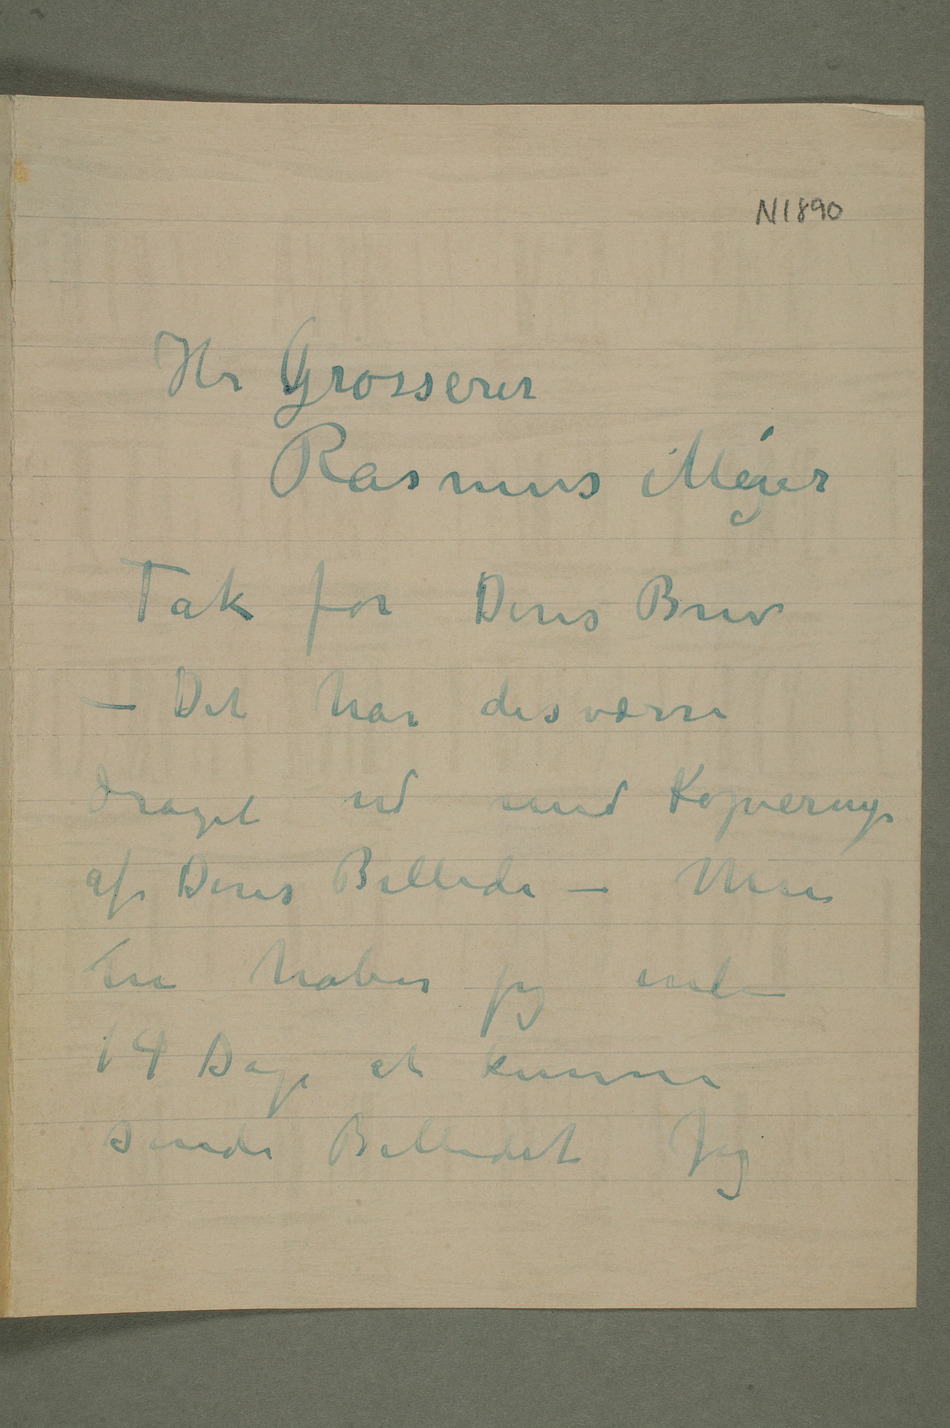 N1890
Hr Grosserer
Rasmus Méyer
Tak for Deres Brev
— Det har desværre
draget ud med Kopiering
af Deres Billede — Men
nu haber jeg inden
14 Dage at kunne
sende Billedet Jeg